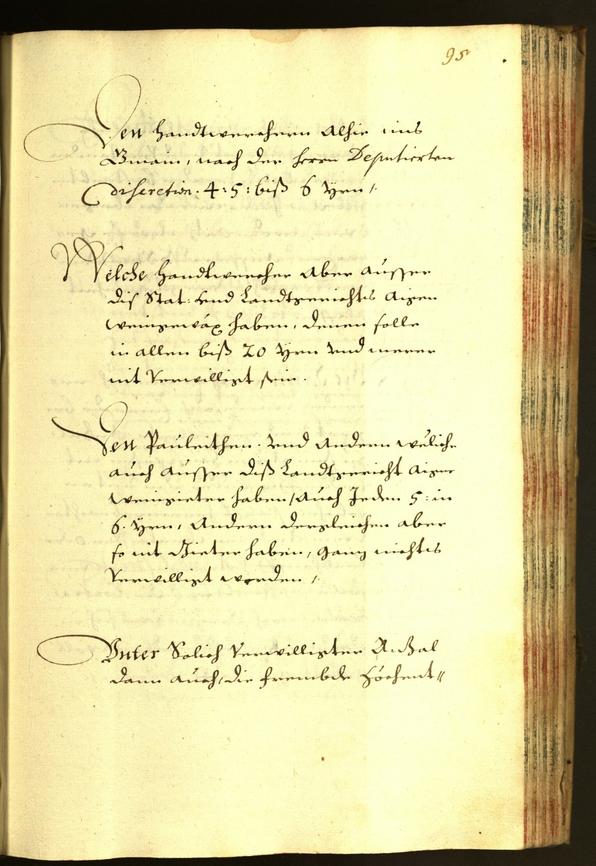 95
Den Handtwerchern Alhie ins
Gmain, nach der Herrn Deputierten
discretion: 4: 5: biß 6 Yrn /.
Welche Handtwercher Aber ausser
diß Stat: vnd Landtgerichts Aigen
weingewäx haben, denen solle
in allem biß 20 Yrn vnd merer
nit Verwilligt sein.
Den Pauleithen. vnd Andern welche
auch ausser diß Landtgericht aigne
weingieter haben, auch Jeden 5: in
6. Yrn, Andern dergleichen aber
so nit Gieter haben, ganz nichts
Verwilligt werden /.
Vnter Solich Verwilligter Anzal
dann auch, die frembde